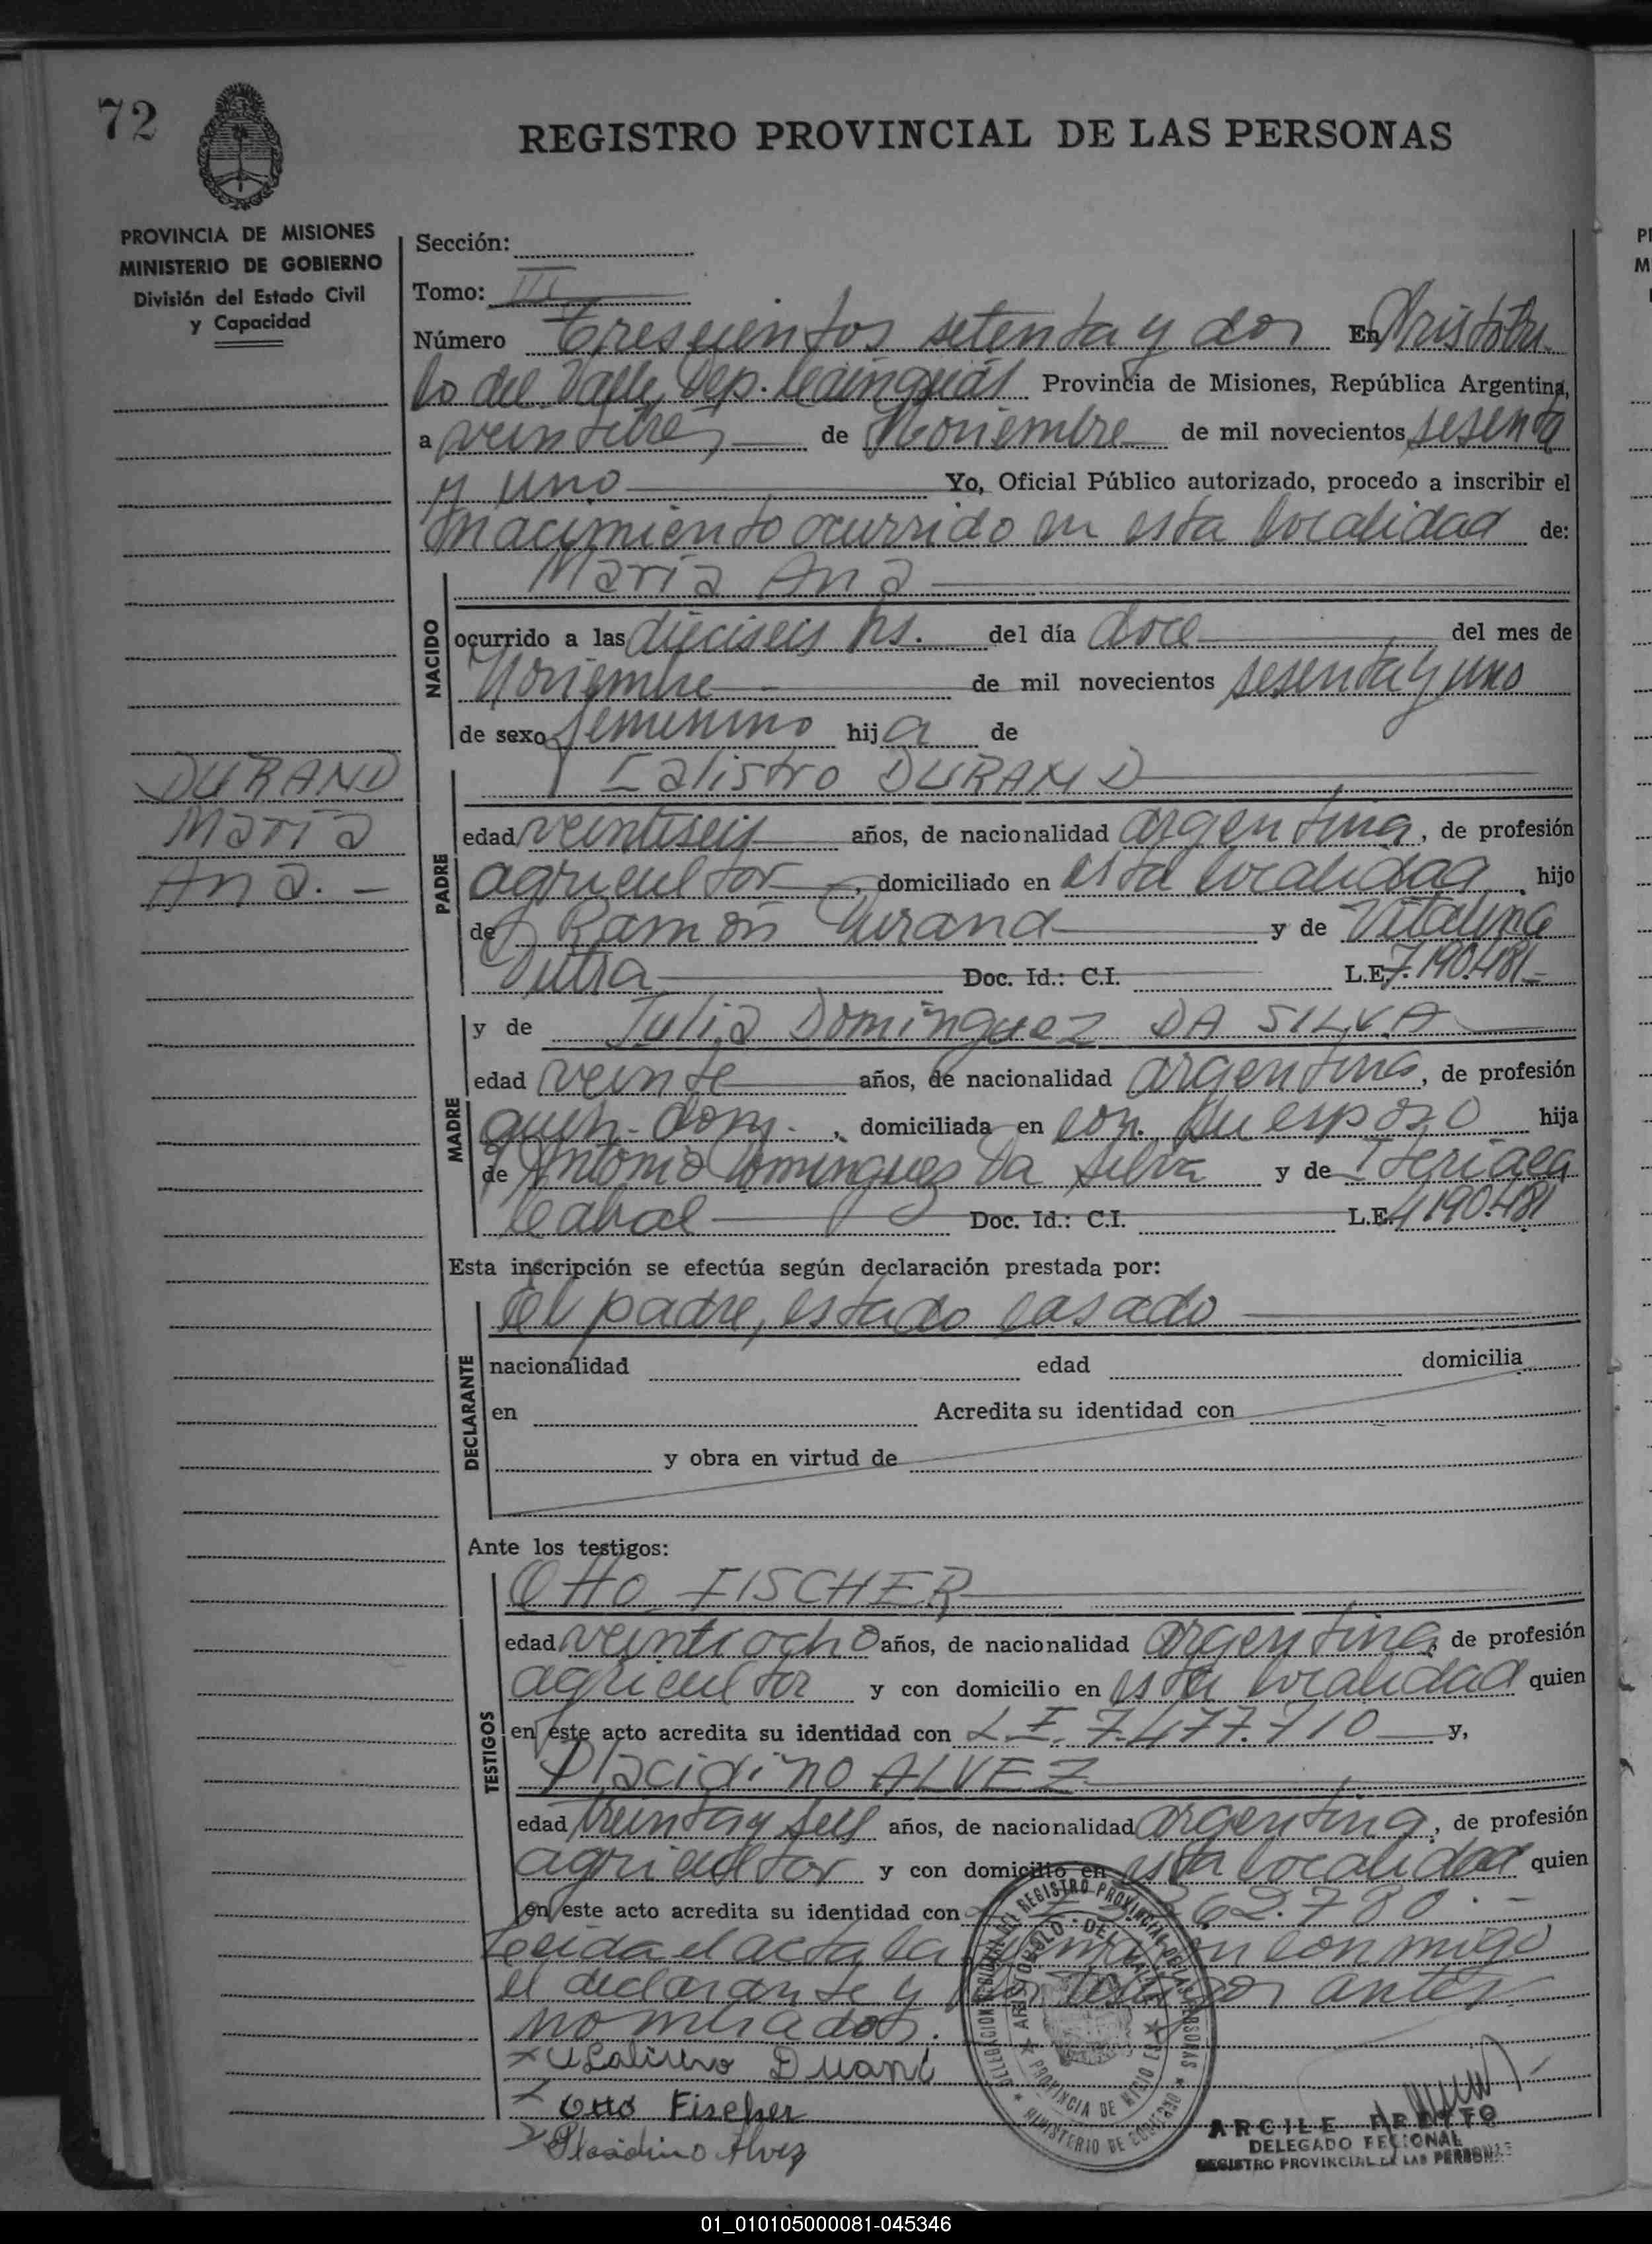 72
REGISTRO PROVINCIAL DE LAS PERSONAS
PROVINCIA DE MISIONES
MINISTERIO DE GOBIERNO
División del Estado Civil
y Capacidad
Sección:
Tomo: III
Número Trescientos setenta y dos En Aristóbu
lo del Valle, Dep. Cainguás Provincia de Misiones, República Argentina,
a veintitres de Noviembre de mil novecientos sesenta
y uno Yo, Oficial Público autorizado, procedo a inscribir el
nacimiento ocurrido en esta localidad de:
María Ana
NACIDO
ocurrido a las dieciseis hs. del día doce del mes de
Noviembre de mil novecientos sesenta y uno
de sexo femenino hija de
DURAND
María
Ana. -
PADRE
Calistro DURAND
edad veintiseis años, de nacionalidad argentina, de profesión
agricultor, domiciliado en esta localidad, hijo
de Ramón Durand y de Vitalina
Dutra Doc. Id.: C.I. L.E. 7.190.481-
MADRE
y de Julia Dominguez DA SILVA
edad veinte años, de nacionalidad argentina, de profesión
queh. dom., domiciliada en con su esposo hija
de Antonio Dominguez Da Silva y de
Cabral Doc. Id.: C.I. L.E. 190.481
Esta inscripción se efectúa según declaración prestada por:
DECLARANTE
el padre, estado casado
nacionalidad edad domicilia
en Acredita su identidad con
y obra en virtud de
Ante los testigos:
TESTIGOS
Otto FISCHER
edad veintiocho años, de nacionalidad argentina, de profesión
agricultor y con domicilio en esta localidad quien
en este acto acredita su identidad con L.E. 7.477.710 y,
Placidino ALVEZ
edad treinta y seis años, de nacionalidad argentina, de profesión
agricultor y con domicilio en esta localidad quien
en este acto acredita su identidad con 62.780.-
Leida el acta la firman conmigo
el declarante y los testigos antes
nombrados.
Otto Fischer
Plasidino Alvez
DELEGACION REGIONAL DEL REGISTRO PROVINCIAL DE LAS PERSONAS
ARISTOBULO DEL VALLE
PROVINCIA DE MISIONES
MINISTERIO DE GOBIERNO
DELEGADO REGIONAL
REGISTRO PROVINCIAL DE LAS PERSONAS
01_010105000081-045346